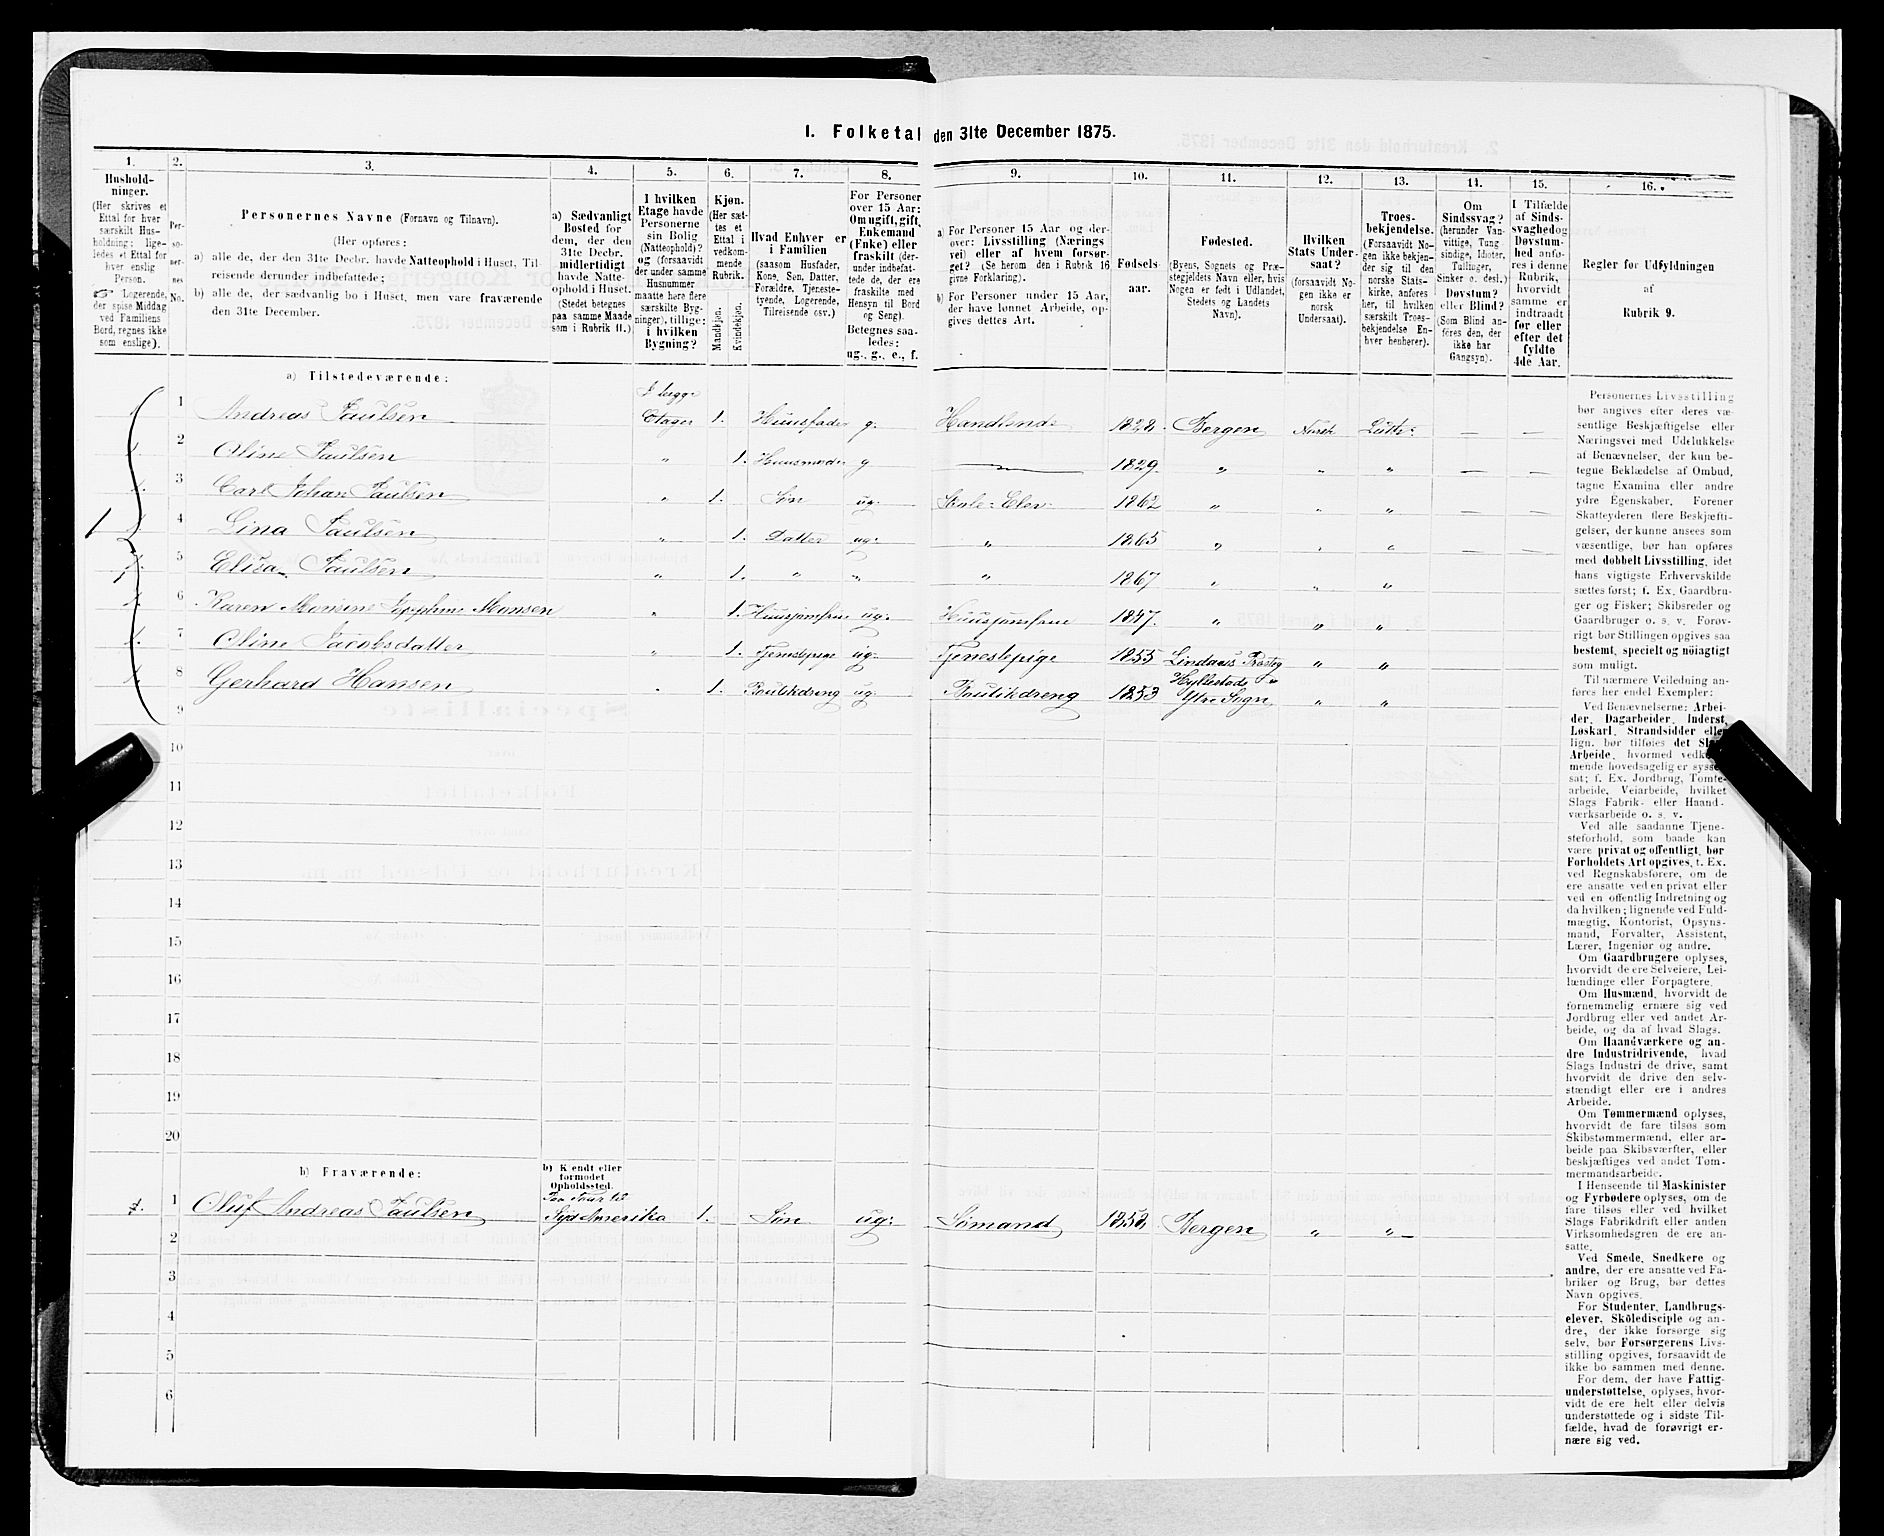 I. Folketal den 31te December 1875.
1. 2. 3. 4. 5. 6. 7. 8. 9. 10. 11. 12. 13. 14. 15. 16.
Husholdninger. (Her skrives et Ettal for hver særskilt Husholdning; ligeledes et Ettal for hver enslig Person. Logerende, der spise Middag ved Familiens Bord, regnes ikke som enslige).
Personernes No.
Personernes Navne (Fornavn og Tilnavn).
(Her opføres:
a) alle de, der den 31te Decbr. havde Natteophold i Huset, Tilreisende derunder indbefattede;
b) alle de, der sædvanlig bo i Huset, men vare fraværende den 31te December.
a) Sædvanligt Bosted for dem, der den 31te Decbr. midlertidigt havde Natteophold i Huset. (Stedet betegnes paa samme Maade som i Rubrik 11.)
I hvilken Etage havde Personerne sin Bolig (Natteophold)? og (forsaavidt der under samme Husnummer maatte høre flere særskilte Bygninger), tillige: i hvilken Bygning?
Kjøn. (Her sættes et Ettal i vedkommende Rubrik.
Mandkjøn. Kvindekjøn.
Hvad Enhver er i Familien (saasom Husfader, Kone, Søn, Datter, Forældre, Tjenestetyende, Logerende, Tilreisende osv.)
For Personer over 15 Aar: Om ugift, gift, Enkemand (Enke) eller fraskilt (derunder indbefattede, der ere fraskilte med Hensyn til Bord og Seng). Betegnes saaledes: ug., g., e., f.
a) For Personer 15 Aar og derover: Livsstilling (Næringsvei) eller af hvem forsørget? (Se herom den i Rubrik 16 givne Forklaring).
b) For Personer under 15 Aar, der have lønnet Arbeide, opgives dettes Art.
Fødselsaar.
Fødested. (Byens, Sognets og Præstegjeldets Navn eller, hvis Nogen er født i Udlandet, Stedets og Landets Navn).
Hvilken Stats Undersaat? (forsaavidt Nogen ikke er norsk Undersaat).
Troesbekjendelse. (Forsaavidt Nogen ikke bekjender sig til den norske Statskirke, anføres her, til hvilken særskilt Troesbekjendelse Enhver henhører).
Om Sindssvag? (herunder Vanvittige, Tungsindige, Idioter, Tullinger, Sinker o. desl.) Døvstum? eller Blind? (Som Blind anføres den, der ikke har Gangsyn).
I Tilfælde af Sindssvaghed og Døvstumhed anføres i denne Rubrik, hvorvidt samme er indtraadt før eller efter det fyldte 4de Aar.
Regler for Udfyldningen
af
Rubrik 9.
a) Tilstedeværende:
I begge
1 Andreas Paulsen Etager 1. Huusfader g. 1828. Bergen Norsk Luth:
2 Oline Paulsen " 1. Huusmoder g 1829. " " "
3 Carl Johan Paulsen " 1. Søn ug. Skole-Elev. 1862 " " "
4 Lina Paulsen " 1. Datter ug. " 1865 " " "
5 Elisa Paulsen " 1. " " " 1867 " " "
6 Karen Monsen " 1. Huusjomfrue ug. Huusjomfrue 1847. " " "
7 Oline Jacobsdatter " 1. Tjenestepige ug. Tjenestepige 1855 Lindaas " "
8 Gerhard Hansen " 1. Boutikdreng ug. Boutikdreng 1853 Hyllestads Ytre Sogn " "
9
10
11
12
13
14
15
16
17
18
19
20
b) Fraværende:
b) Kjendt eller formodet Opholdssted.
1 Oluf Andreas Paulsen Paa Tour til Syd Amerika 1. Søn ug. Sømand Bergen " "
2
3
4
5
6
Personernes Livsstilling
bør angives efter deres væ-
sentlige Beskjæftigelse eller
Næringsvei med Udelukkelse
af Benævnelser, der kun be-
tegne Beklædelse af Ombud,
tagne Examina eller andre
ydre Egenskaber. Forener
Skatteyderen flere Beskjæfti-
gelser, der kunne ansees som
væsentlige, bør han opføres
med dobbelt Livsstilling, idet
hans vigtigste Erhvervskilde
sættes først; f. Ex. Gaardbru-
ger og Fisker; Skibsreder og
Gaardbruger o. s. v. Forøv-
rigt bør Stillingen opgives saa
bestemt, specielt og nöiagtigt
som muligt.
Til nærmere Veiledning an-
føres her endel Exempler:
Ved Benævnelserne: Arbei-
der, Dagarbeider, Inderst,
Løskarl, Strandsidder eller
lign. bør tilføies det Slags
Arbeide, hvormed vedkom-
mende hovedsagelig er syssel-
sat; f. Ex. Jordbrug, Tomte-
arbeide, Veiarbeide, hvilket
Slags Fabrik- eller Haand-
værksarbeide o. s. v.
Ved alle saadanne Tjene-
steforhold, som baade kan
være privat og offentligt, bør
Forholdets Art opgives, t. Ex.
ved Regnskabsførere, om de
ere ansatte ved en privat eller
ved en offentlig Indretning og
da hvilken; lignende ved Fuld-
mægtig, Kontorist, Opsyns-
mand, Forvalter, Assistent,
Lærer, Ingeniør og andre.
Om Gaardbrugere oplyses,
hvorvidt de ere Selveiere, Lei-
lændinge eller Forpagtere.
Om Husmænd, hvorvidt de
fornemmelig ernære sig ved
Jordbrug eller ved andet Ar-
beide, og da af hvad Slags.
Om Haandværkere og an-
dre Industridrivende, hvad
Slags Industri de drive, samt
hvorvidt de drive den selv-
stændigt eller ere i andres
Arbeide.
Om Tømmermænd oplyses,
hvorvidt de fare tilsøs som
Skibstømmermænd, eller ar-
beide paa Skibsværfter, eller
beskjæftiges ved andet Tøm-
mermandsarbeide.
I Henseende til Maskinister
og Fyrbødere oplyses, om de
fare tilsøs eller ved hvilket
Slags Fabrikdrift eller anden
Virksomhedsgren de ere an-
satte.
Ved Smede, Snedkere og
andre, der ere ansatte ved Fa-
briker og Brug, bør dettes
Navn opgives.
For Studenter, Landbrugs-
elever, Skoledisciple og an-
dre, der ikke forsørge sig
selv, bør Forsørgerens Livs-
stilling opgives, forsaavidt de
ikke bo sammen med denne.
For dem, der have Fattig-
understøttelse, oplyses, hvor-
vidt de ere helt eller delvis
understøttede og i sidste Til-
fælde, hvad de forøvrigt er-
nære sig ved.